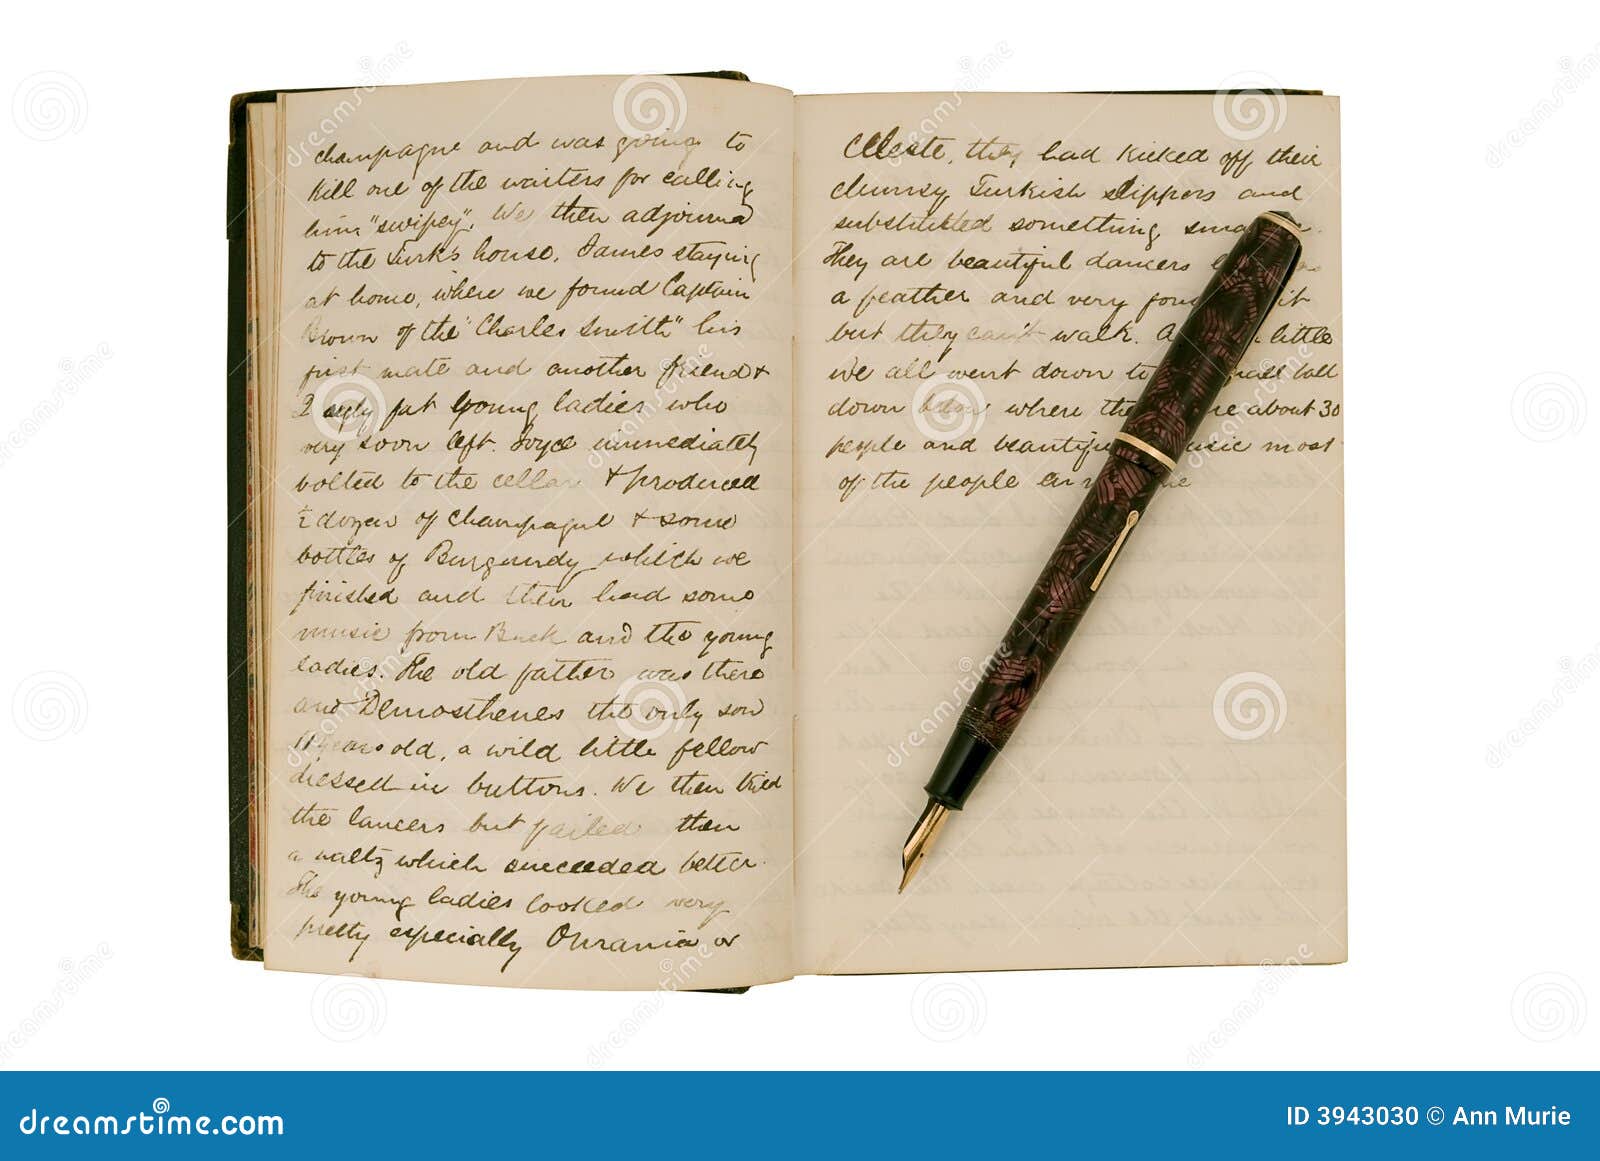 champagne and was going to
kill one of the waiters for calling
him "swipey". We then adjourned
to the Turk's house, James staying
at home, where we found Captain
Brown of the "Charles Smith" his
first mate and another friend &
2 ugly fat young ladies who
very soon left. Joyce immediately
bolted to the cellar & produced
½ dozen of champagne & some
bottles of Burgundy which we
finished and then had some
music from Buck and the young
ladies. The old father was there
and Demosthenes the only son
11 years old, a wild little fellow
dressed in buttons. We then tried
the lancers but failed then
a waltz which succeeded better.
The young ladies looked very
pretty especially Ourania or
Celeste, they had kicked off their
clumsy Turkish slippers and
substituted something
They are beautiful dancers
a feather and very it
but they can't walk. little
We all went down to ball
down below where about 30
people and music most
of the people
dreamstime.com
ID 3943030 © Ann Murie